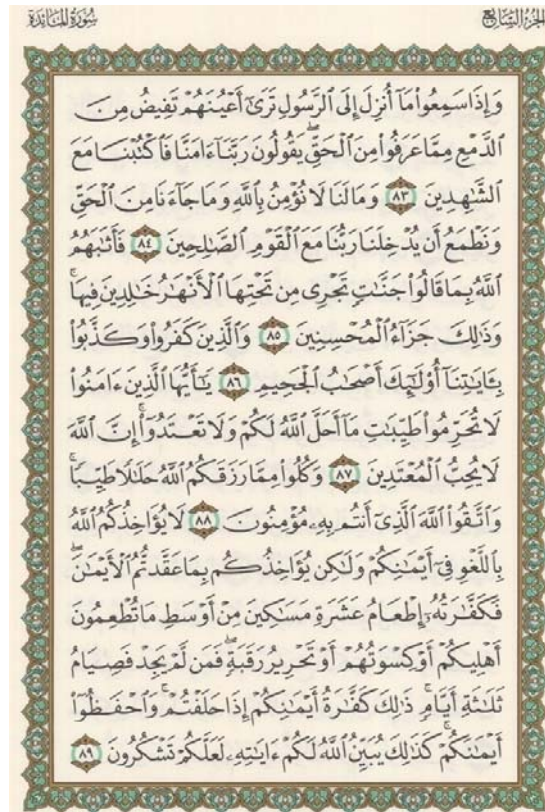 الجزء السابع
سورة المائدة
وَإِذَا سَمِعُوا۟ مَآ أُنزِلَ إِلَى ٱلرَّسُولِ تَرَىٰٓ أَعْيُنَهُمْ تَفِيضُ مِنَ
ٱلدَّمْعِ مِمَّا عَرَفُوا۟ مِنَ ٱلْحَقِّ ۖ يَقُولُونَ رَبَّنَآ ءَامَنَّا فَٱكْتُبْنَا مَعَ
ٱلشَّٰهِدِينَ ٨٣ وَمَا لَنَا لَا نُؤْمِنُ بِٱللَّهِ وَمَا جَآءَنَا مِنَ ٱلْحَقِّ
وَنَطْمَعُ أَن يُدْخِلَنَا رَبُّنَا مَعَ ٱلْقَوْمِ ٱلصَّٰلِحِينَ ٨٤ فَأَثَٰبَهُمُ
ٱللَّهُ بِمَا قَالُوا۟ جَنَّٰتٍ تَجْرِى مِن تَحْتِهَا ٱلْأَنْهَٰرُ خَٰلِدِينَ فِيهَا ۚ
وَذَٰلِكَ جَزَآءُ ٱلْمُحْسِنِينَ ٨٥ وَٱلَّذِينَ كَفَرُوا۟ وَكَذَّبُوا۟
بِـَٔايَٰتِنَآ أُو۟لَٰٓئِكَ أَصْحَٰبُ ٱلْجَحِيمِ ٨٦ يَٰٓأَيُّهَا ٱلَّذِينَ ءَامَنُوا۟
لَا تُحَرِّمُوا۟ طَيِّبَٰتِ مَآ أَحَلَّ ٱللَّهُ لَكُمْ وَلَا تَعْتَدُوٓا۟ ۚ إِنَّ ٱللَّهَ
لَا يُحِبُّ ٱلْمُعْتَدِينَ ٨٧ وَكُلُوا۟ مِمَّا رَزَقَكُمُ ٱللَّهُ حَلَٰلًا طَيِّبًا ۚ
وَٱتَّقُوا۟ ٱللَّهَ ٱلَّذِىٓ أَنتُم بِهِۦ مُؤْمِنُونَ ٨٨ لَا يُؤَاخِذُكُمُ ٱللَّهُ
بِٱللَّغْوِ فِىٓ أَيْمَٰنِكُمْ وَلَٰكِن يُؤَاخِذُكُم بِمَا عَقَّدتُّمُ ٱلْأَيْمَٰنَ ۖ
فَكَفَّٰرَتُهُۥٓ إِطْعَامُ عَشَرَةِ مَسَٰكِينَ مِنْ أَوْسَطِ مَا تُطْعِمُونَ
أَهْلِيكُمْ أَوْ كِسْوَتُهُمْ أَوْ تَحْرِيرُ رَقَبَةٍ ۖ فَمَن لَّمْ يَجِدْ فَصِيَامُ
ثَلَٰثَةِ أَيَّامٍ ۚ ذَٰلِكَ كَفَّٰرَةُ أَيْمَٰنِكُمْ إِذَا حَلَفْتُمْ ۚ وَٱحْفَظُوٓا۟
أَيْمَٰنَكُمْ ۚ كَذَٰلِكَ يُبَيِّنُ ٱللَّهُ لَكُمْ ءَايَٰتِهِۦ لَعَلَّكُمْ تَشْكُرُونَ ٨٩